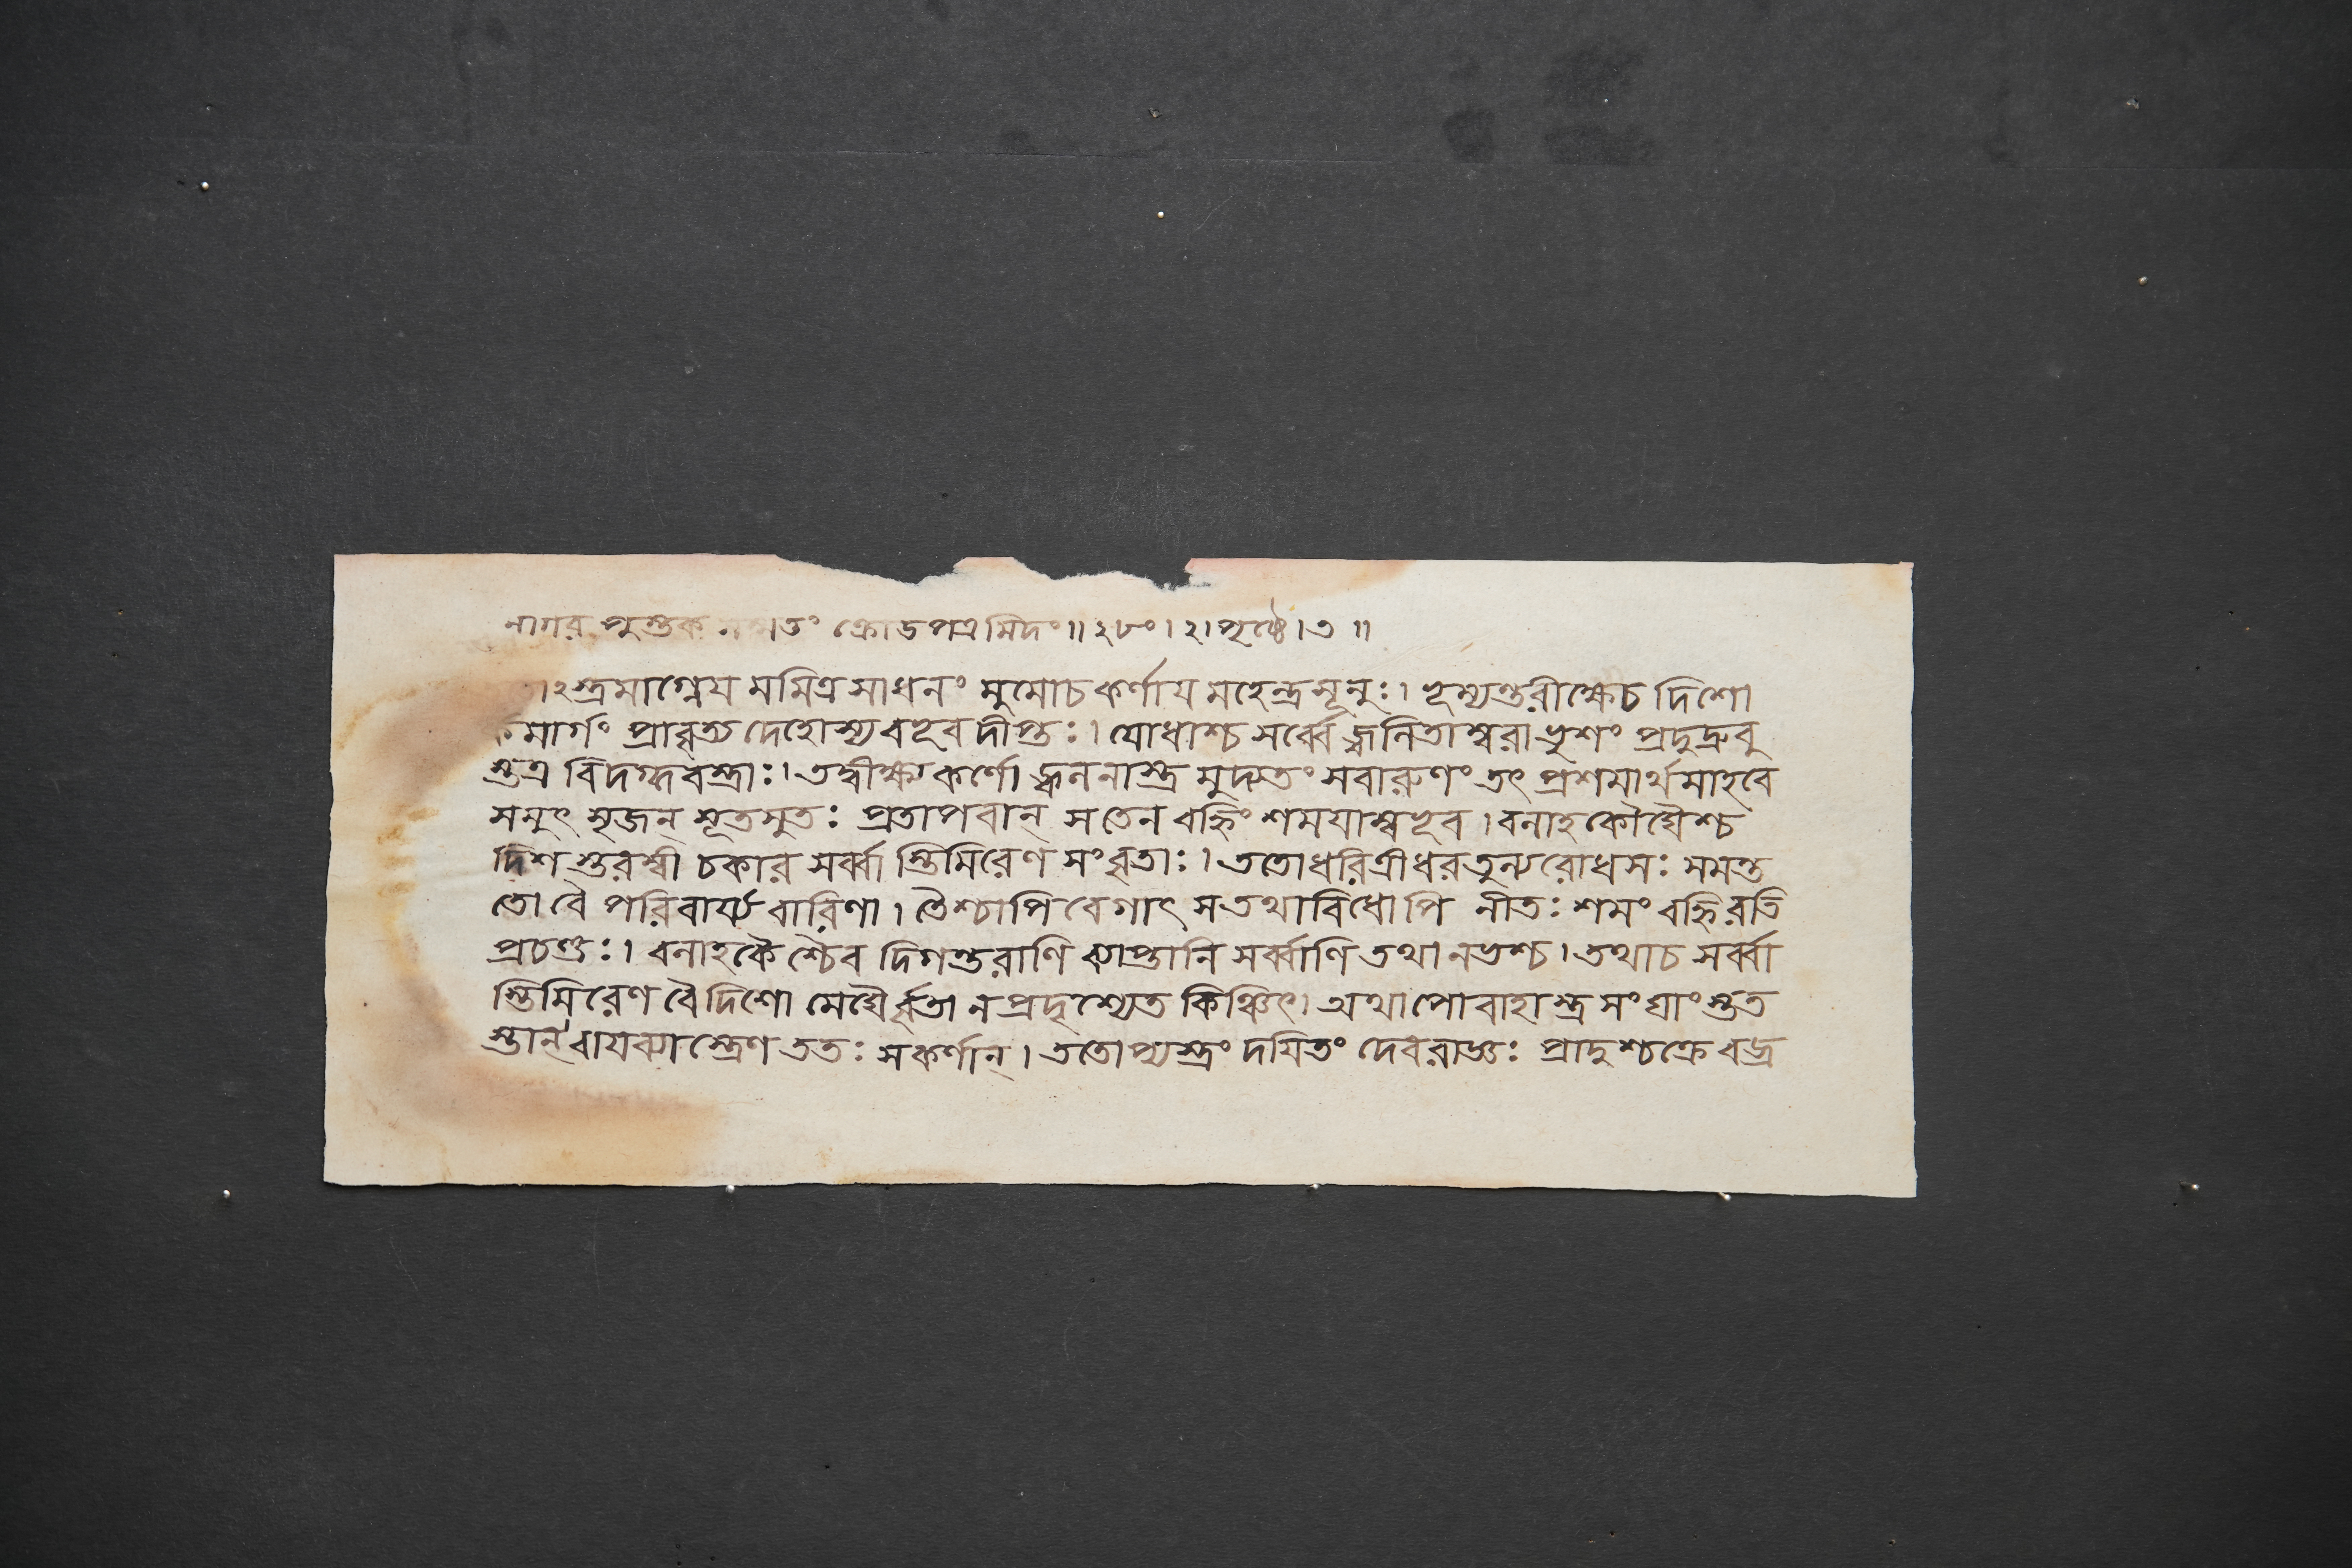 নাগর পুস্তক তং ক্রোডপত্রমিদং॥ ২৮ং। ২। পৃষ্ঠে। ৩ ॥
২স্ত্রমাগ্নেয মমিত্রসাধনং মুমোচ কর্ণায মহেন্দ্রসূনুঃ। ভূম্যন্তরীক্ষেচ দিশো
র্কমার্গং প্রাবৃত্য দেহোস্য বভূব দীপ্তঃ। যোধাশ্চ সর্ব্বে জ্বলিতাম্বরাভৃশং প্রদুদ্রুবু
স্তত্র বিদগ্দবস্ত্রাঃ। তদ্বীক্ষ্য কর্ণো জ্বলনাস্ত্র মুদ্যতং সবারুণং তৎ প্রশমার্থমাহবে
সমুৎ সৃজন্ সূতসুতঃ প্রতাপবান্ সতেন বহ্নিং শমযাম্বভূব। বলাহকৌঘৈশ্চ
দিশ স্তরস্বী চকার সর্ব্বা স্তিমিরেণ সংবৃতাঃ। ততোধরিত্রীধরতুল্যরোধসঃ সমন্ত
তো বৈ পরিবার্য্য বারিণা। তৈশ্চাপি বেগাৎ সতথাবিধোপি নীতঃ শমং বহ্নিরতি
প্রচণ্ডঃ। বলাহকৈ শ্চৈব দিগন্তরাণি ব্যাপ্তানি সর্ব্বাণি তথা নভশ্চ। তথাচ সর্ব্বা
স্তিমিরেণ বৈ দিশো মেঘৈর্ব্বৃতা ন প্রদৃশ্যেত কিঞ্চিৎ। অথাপোবাহাস্ত্র সংঘাংস্তত
স্তান্ বাযব্যাস্ত্রেণ ততঃ সকর্ণান্। ততোপ্যস্ত্রং দযিতং দেবরাজ্ঞঃ প্রাদুশ্চক্রে বজ্র